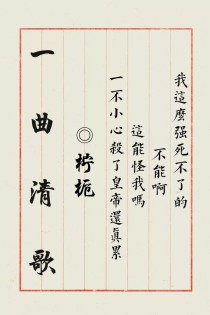 我這麼强死不了的
不能啊
這能怪我嗎
一不小心殺了皇帝還真累
◎柠栀
一曲清歌